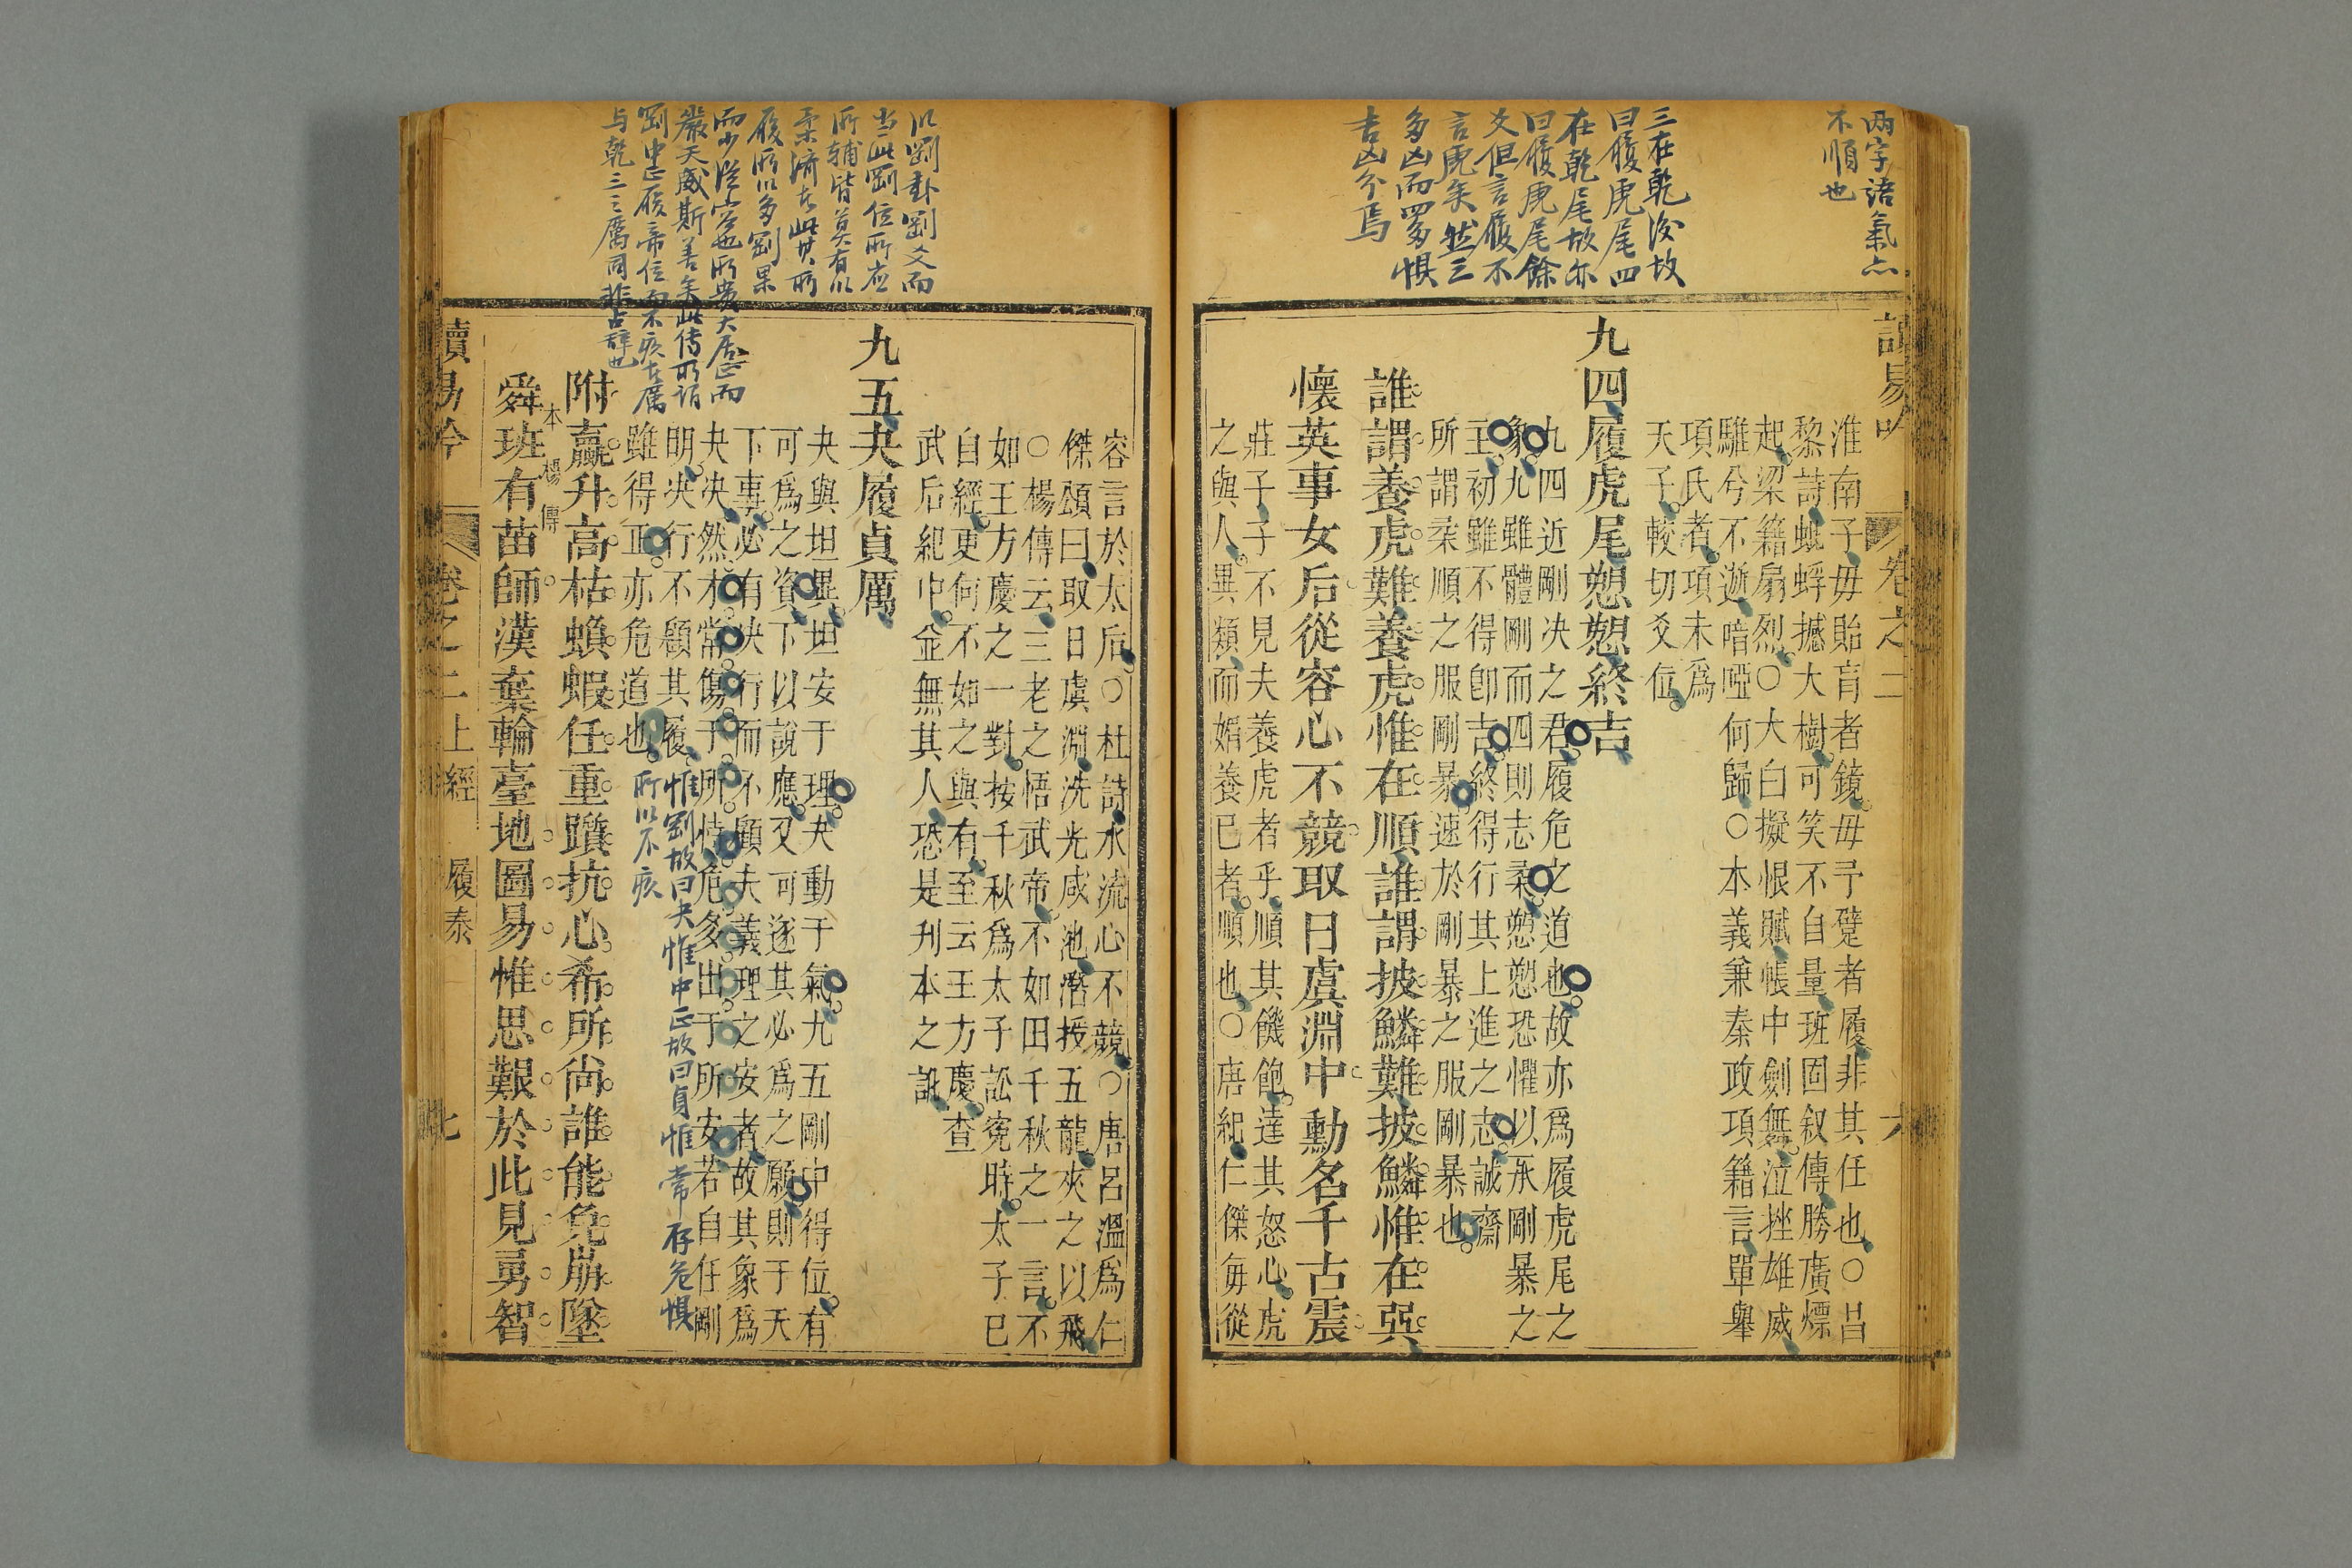 两字語氣亦
不順也
三在乾後故
曰履虎尾四
在乾尾故亦
曰履虎尾餘
爻但言履不
言虎矣然三
多凶而四多懼
吉凶分焉
讀易吟
卷之二
六
淮南子毋貽盲者鏡毋予躄者履非其任也○昌
黎詩蚍蜉撼大樹可笑不自量班固叙傳勝廣熛
起梁籍扇烈○大白擬恨賦帳中劍舞泣挫雄威
騅兮不逝喑啞何歸○本義兼秦政項籍言單舉
項氏者項未爲
天子較切爻位
九四履虎尾愬愬終吉
九四近剛决之君履危之道也故亦爲履虎尾之
象九雖體剛而四則志柔愬愬恐懼以承剛暴之
主初雖不得卽吉終得行其上進之志誠齋
所謂柔順之服剛暴速於剛暴之服剛暴也
誰謂養虎難養虎惟在順誰謂披鱗難披鱗惟在巽
懷英事女后從容心不競取日虞淵中勳名千古震
莊子子不見夫養虎者乎順其饑飽達其怒心虎
之與人異類而媚養已者順也○唐紀仁傑每從
以剛卦剛爻而
当此剛位所应
所輔皆莫有以
柔濟者此其所
履所以多剛果
而少從容也所貴大居正而
嚴天威斯善矣此傳所謂
剛中正履帝位而不疚者厲
与乾三之厲同非占辞也
容言於太后○杜詩水流心不競○唐呂溫爲仁
傑頌曰取日虞淵洗光咸池潛授五龍夾之以飛
○楊傳云三老之悟武帝不如田千秋之一言不
如王方慶之一對按千秋爲太子訟寃時太子已
自經更何不如之與有至云王方慶查
武后紀中並無其人恐是刋本之訛
九五夬履貞厲
夬與坦異坦安于理夬動于氣九五剛中得位有
可爲之資下以說應又可遂其必爲之願則于天
下事必有决行而不顧夫義理之安者故其象爲
夬决然才常傷于所恃危多出于所安若自任剛
明决行不顧其履惟剛故曰夬惟中正故曰貞惟常存危懼
雖得正亦危道也所以不疚
附蠃升高枯蠙蝦任重躓抗心希所尚誰能免崩墜
本楊傳
舜班有苗師漢棄輪臺地圖易惟思艱於此見勇智
讀易吟
卷之二上經
履泰
七